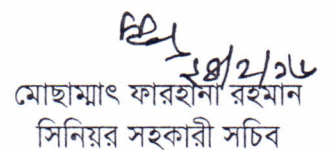 ২৪/২/১৬
মোছাম্মাৎ ফারহানা রহমান
সিনিয়র সহকারী সচিব